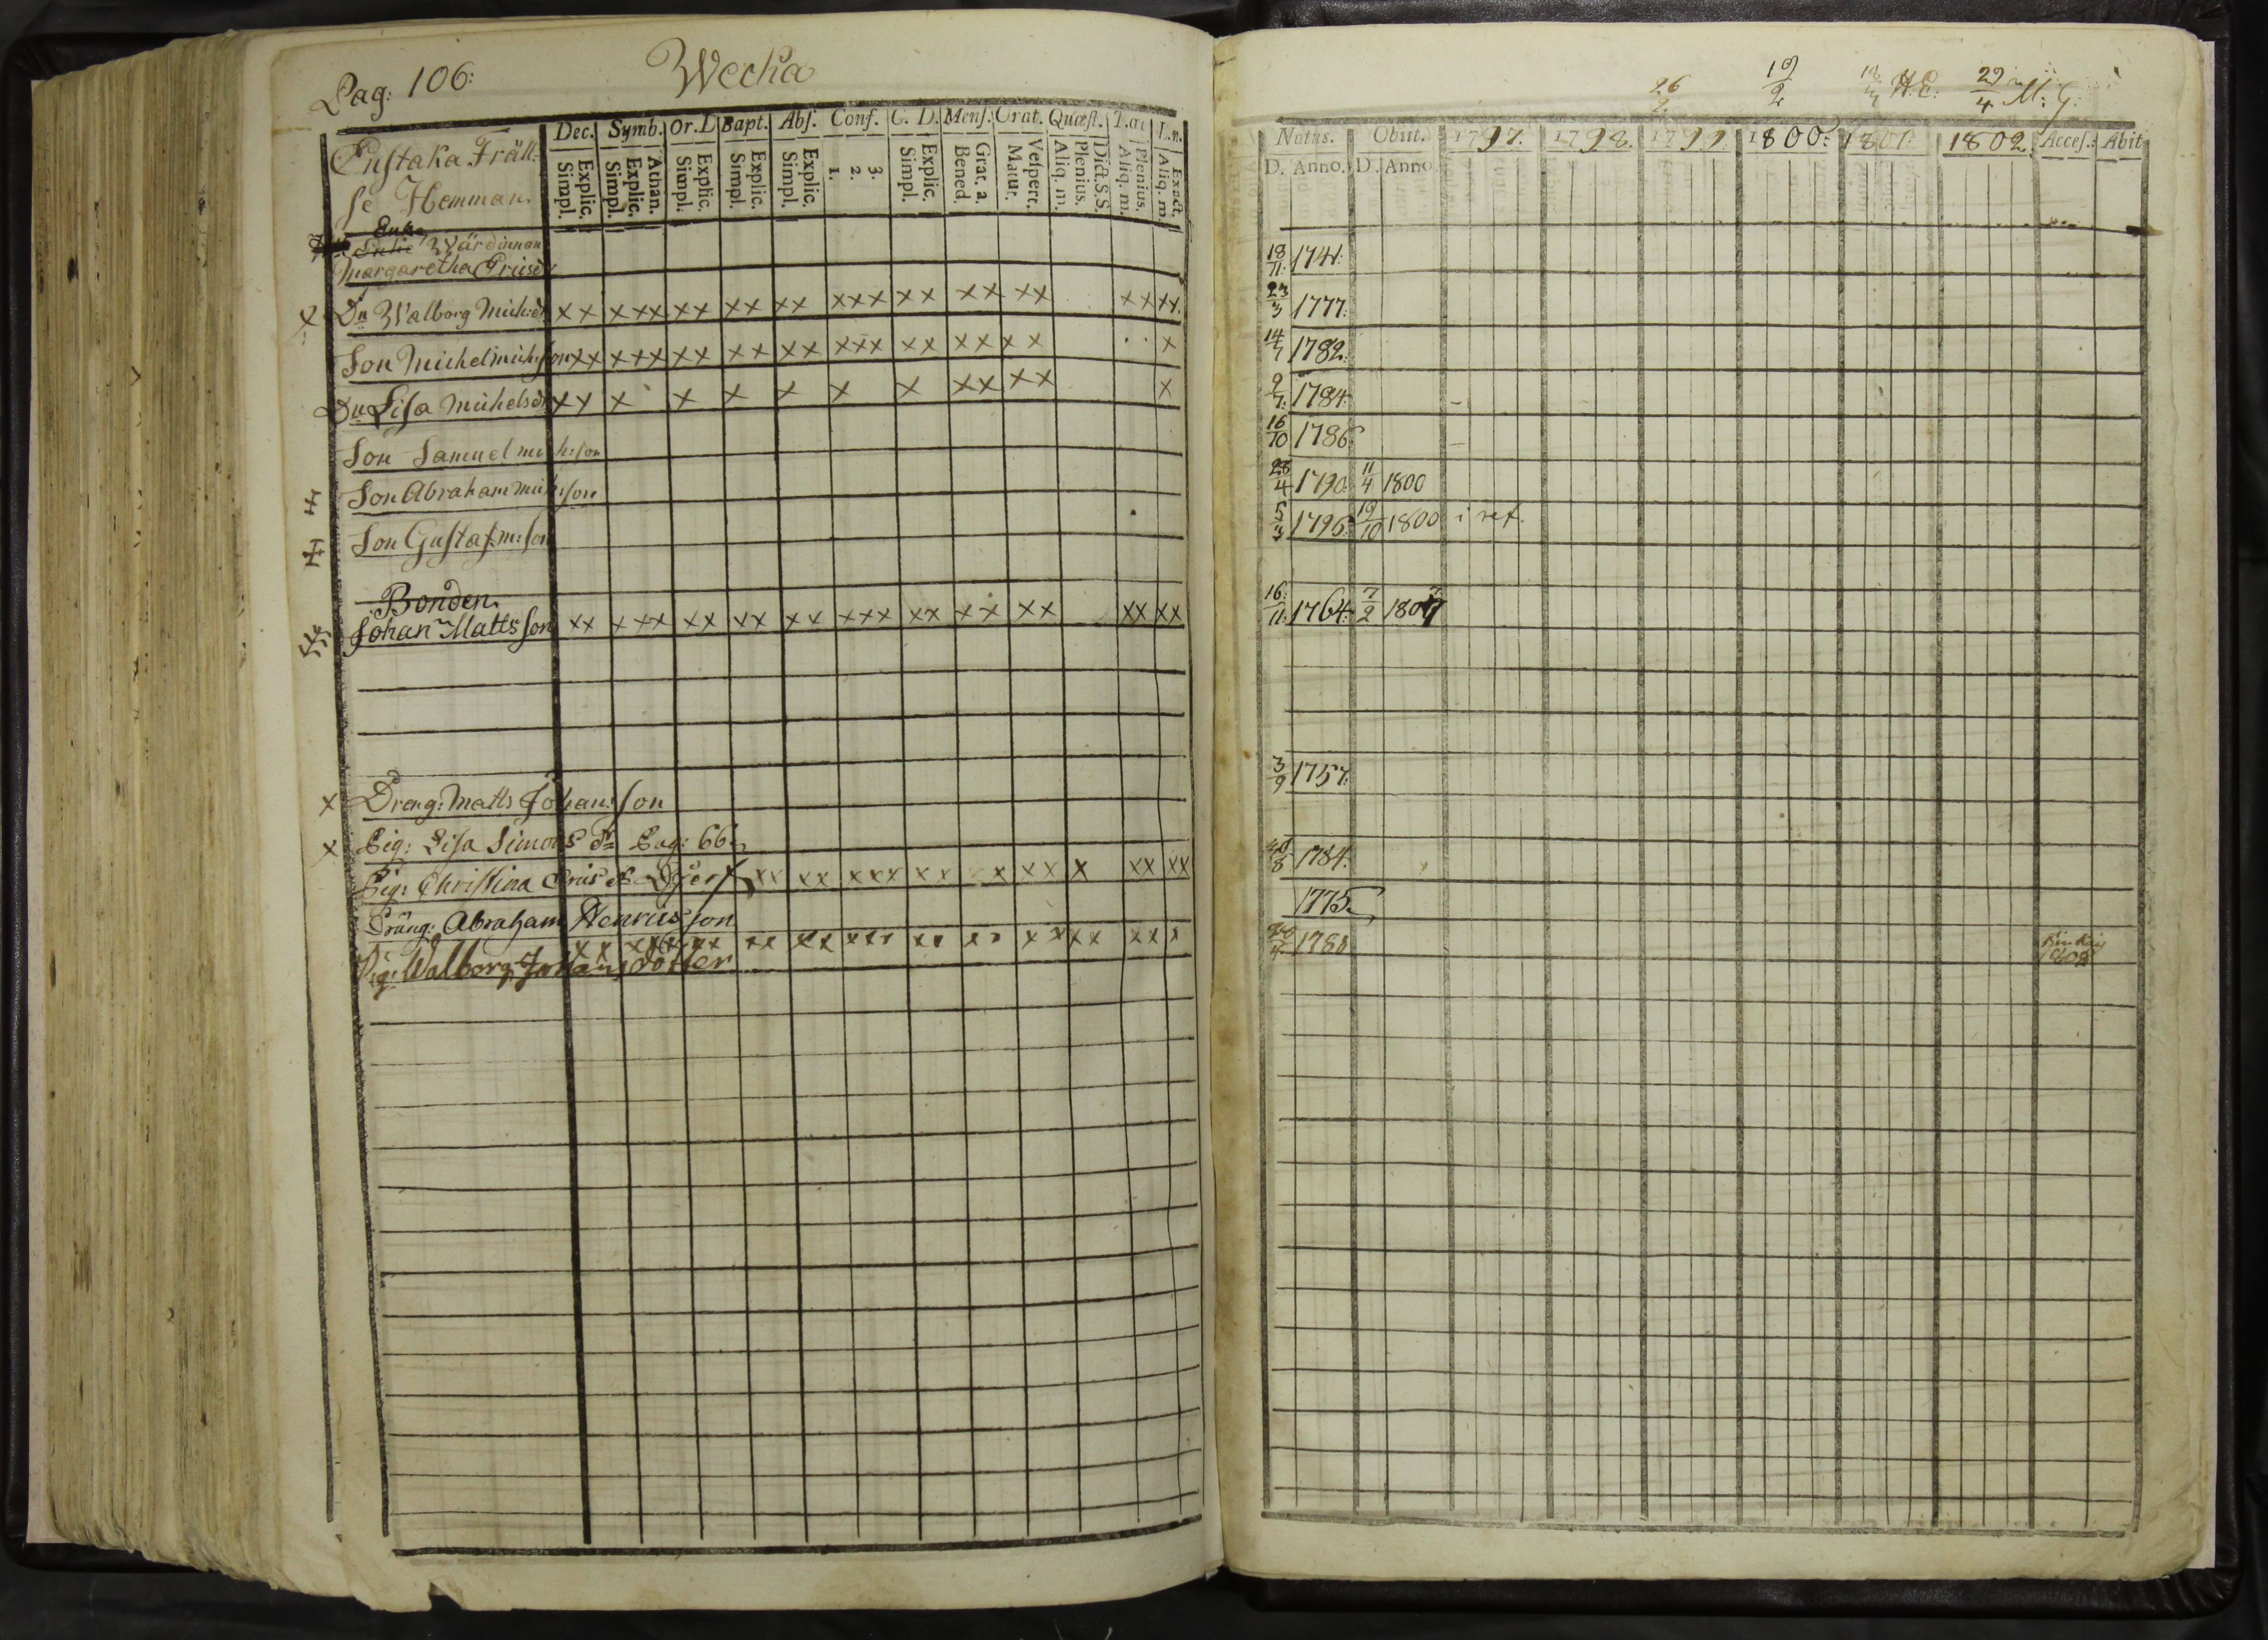 Pag: 106:
Wecka
Enstaka Fräls
se Hemman.
Dec. Symb. Or.D. Bapt. Abs. Conf. C. D. Mens. Orat. Quæst. T.
Simpl. Explic. Simpl. Explic. Athan. Simpl. Explic. Simpl. Explic. Simpl. Explic. 1. 2. 3. Simpl. Explic. Bened. Grat. a. Matut. Vespert. Aliq. m. Plenius. Dict.S.S. Aliq. m. Plenius. Aliq. m. Exact.
Enka
Enkie Wärdinnan
Margaretha Griisdr
x Dr Walborg Mich:dr xx xxx xx xx xx xxx xx xx xx xx xx.
Son Michel mich:son xx xxx xx xx xx xxx xx xx xx x
Dr Lisa Michelsdr xx x x x x x x xx xx x
Son Samuel mich:son
Son Abraham mich:son
Son Gustaf m:son
Bonden.
Johan Mattsson xx xxx xx xx xx xxx xx xx xx xx xx
x Dreng: Matts Johan:son
x Pig: Lisa Simons Dr Pag: 66.
Pig: Christina xx xx xxx xx x xx x xx xx
Dräng: Abraham Henricsson
xx xxx xx xx xx xxx xx xx xx xx xx x
Pig: Walborg Johansdotter
26/2 19/2 H.C: 29/4 M: G:
Natus. Obiit. 1797. 1798. 1799. 1800: 1801: 1802. Acces.: Abit
D. Anno. D. Anno
18/11: 1741:
23/3 1777:
14/7 1782:
9/7: 1784:
16/10 1786:
28/4 1790: 11/4 1800
5/3 1796: 19/10 1800 i ref.
16:/11: 1764: 7/2 1807
3/9 1757:
1784:
1775.
1780